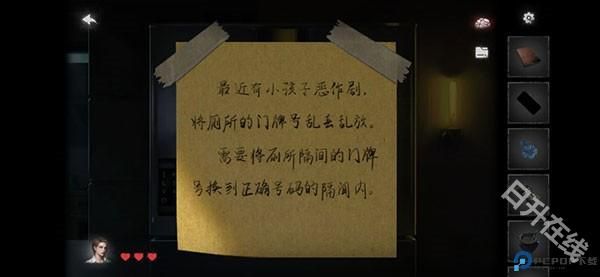 最近有小孩子恶作剧，
将厕所的门牌号乱丢乱放。
需要将厕所隔间的门牌
号换到正确号码的隔间内。
日升在线